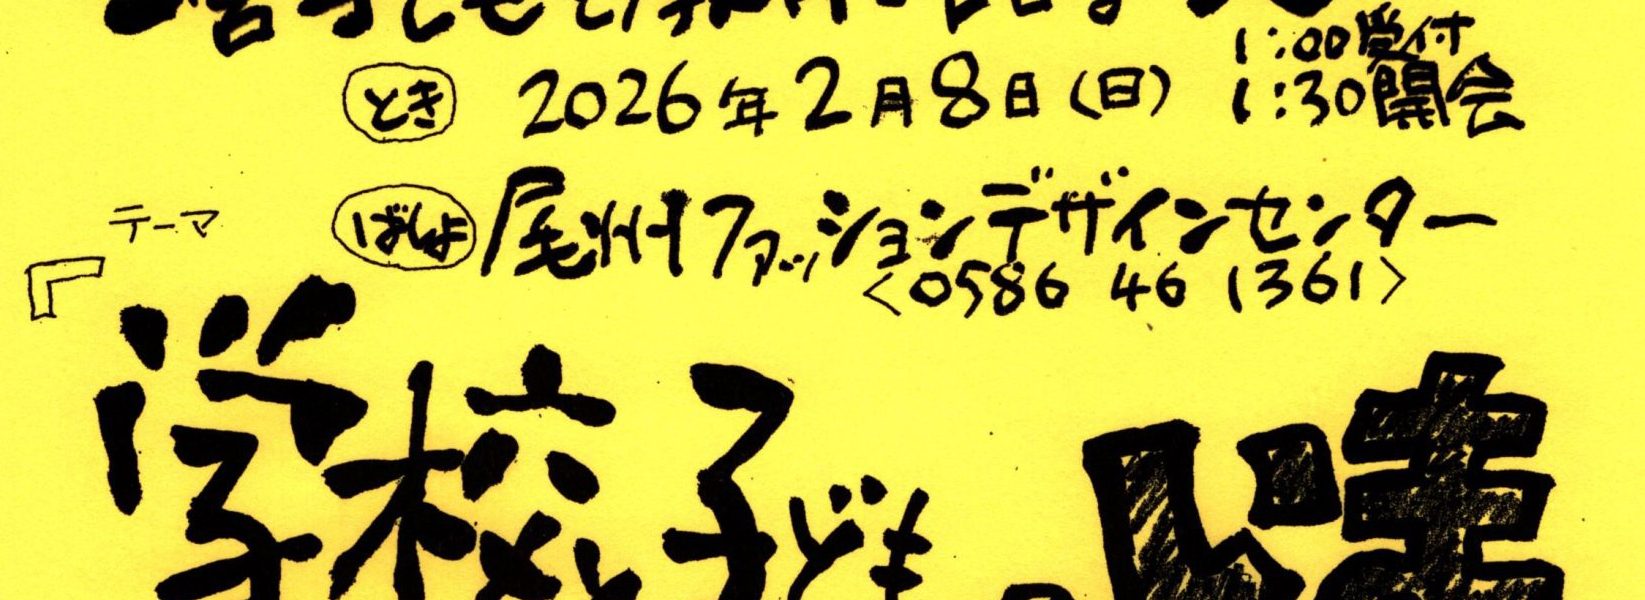 1:00受付
とき 2026年2月8日(日) 1:30開会
ばしょ 尾州ファッションデザインセンター
<0586 46 1361>
テーマ
『学校と子ども